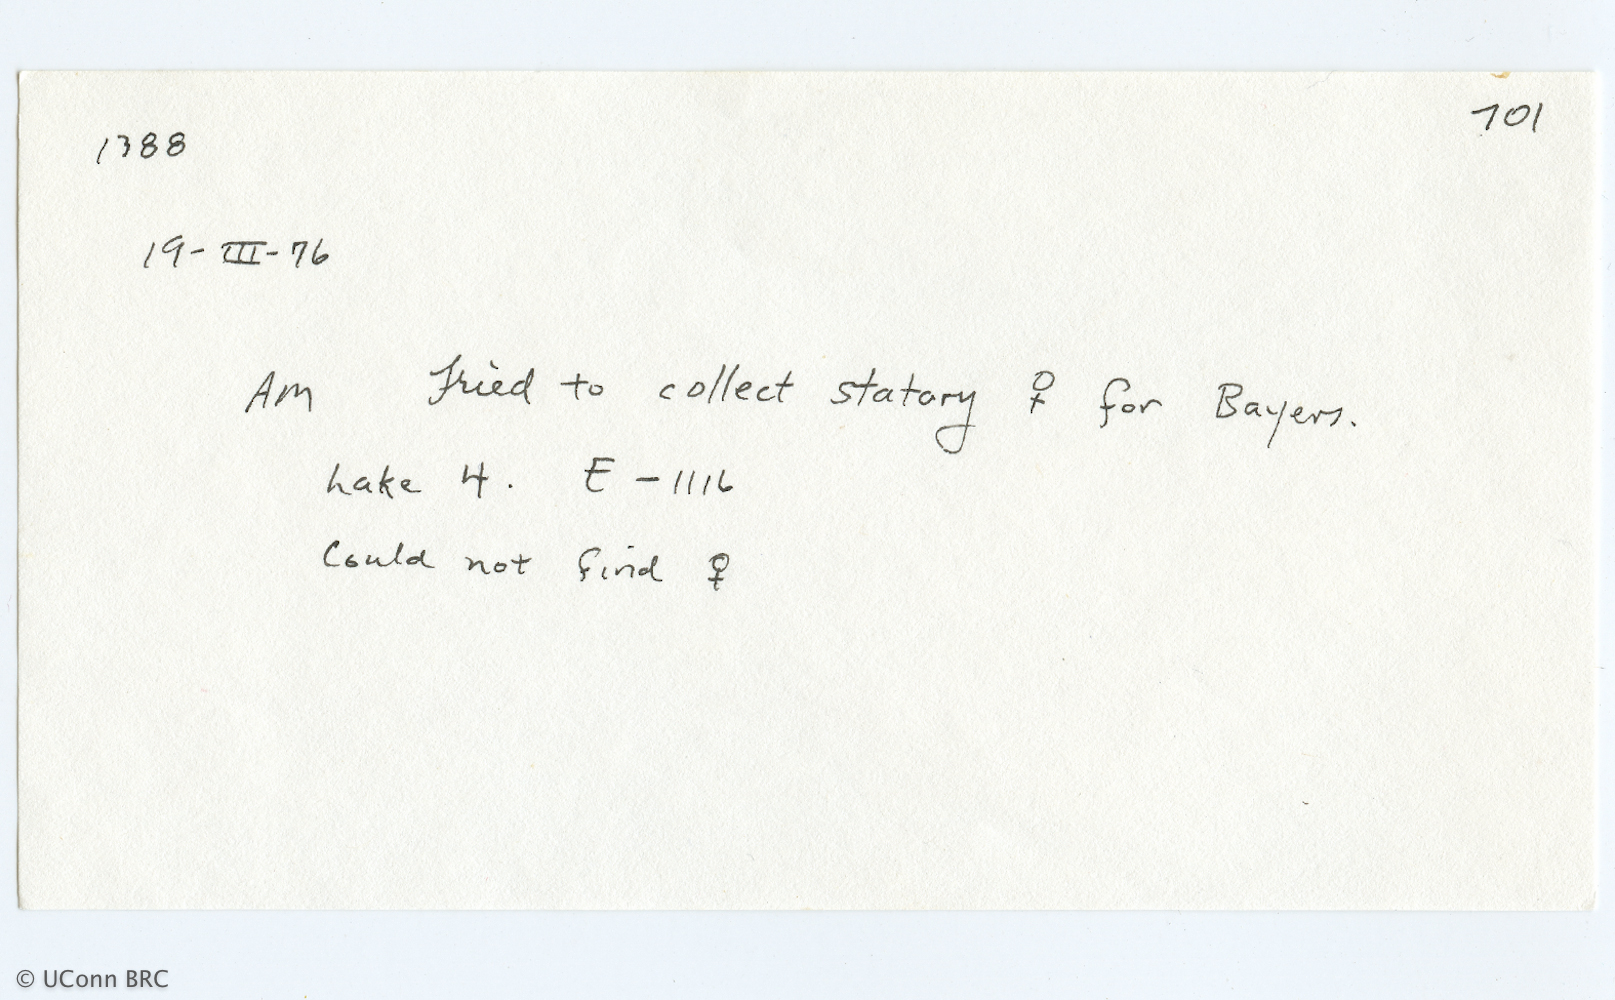 701
1388
19-III-76
AM Tried to collect statary ♀ for Bayers.
Lake 4. E-1116
Could not find ♀
© UConn BRC